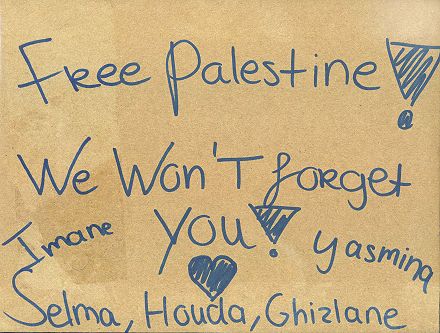 Free Palestine!
We Won't forget
You!
Imane
Yasmina
Selma, Houda, Ghizlane